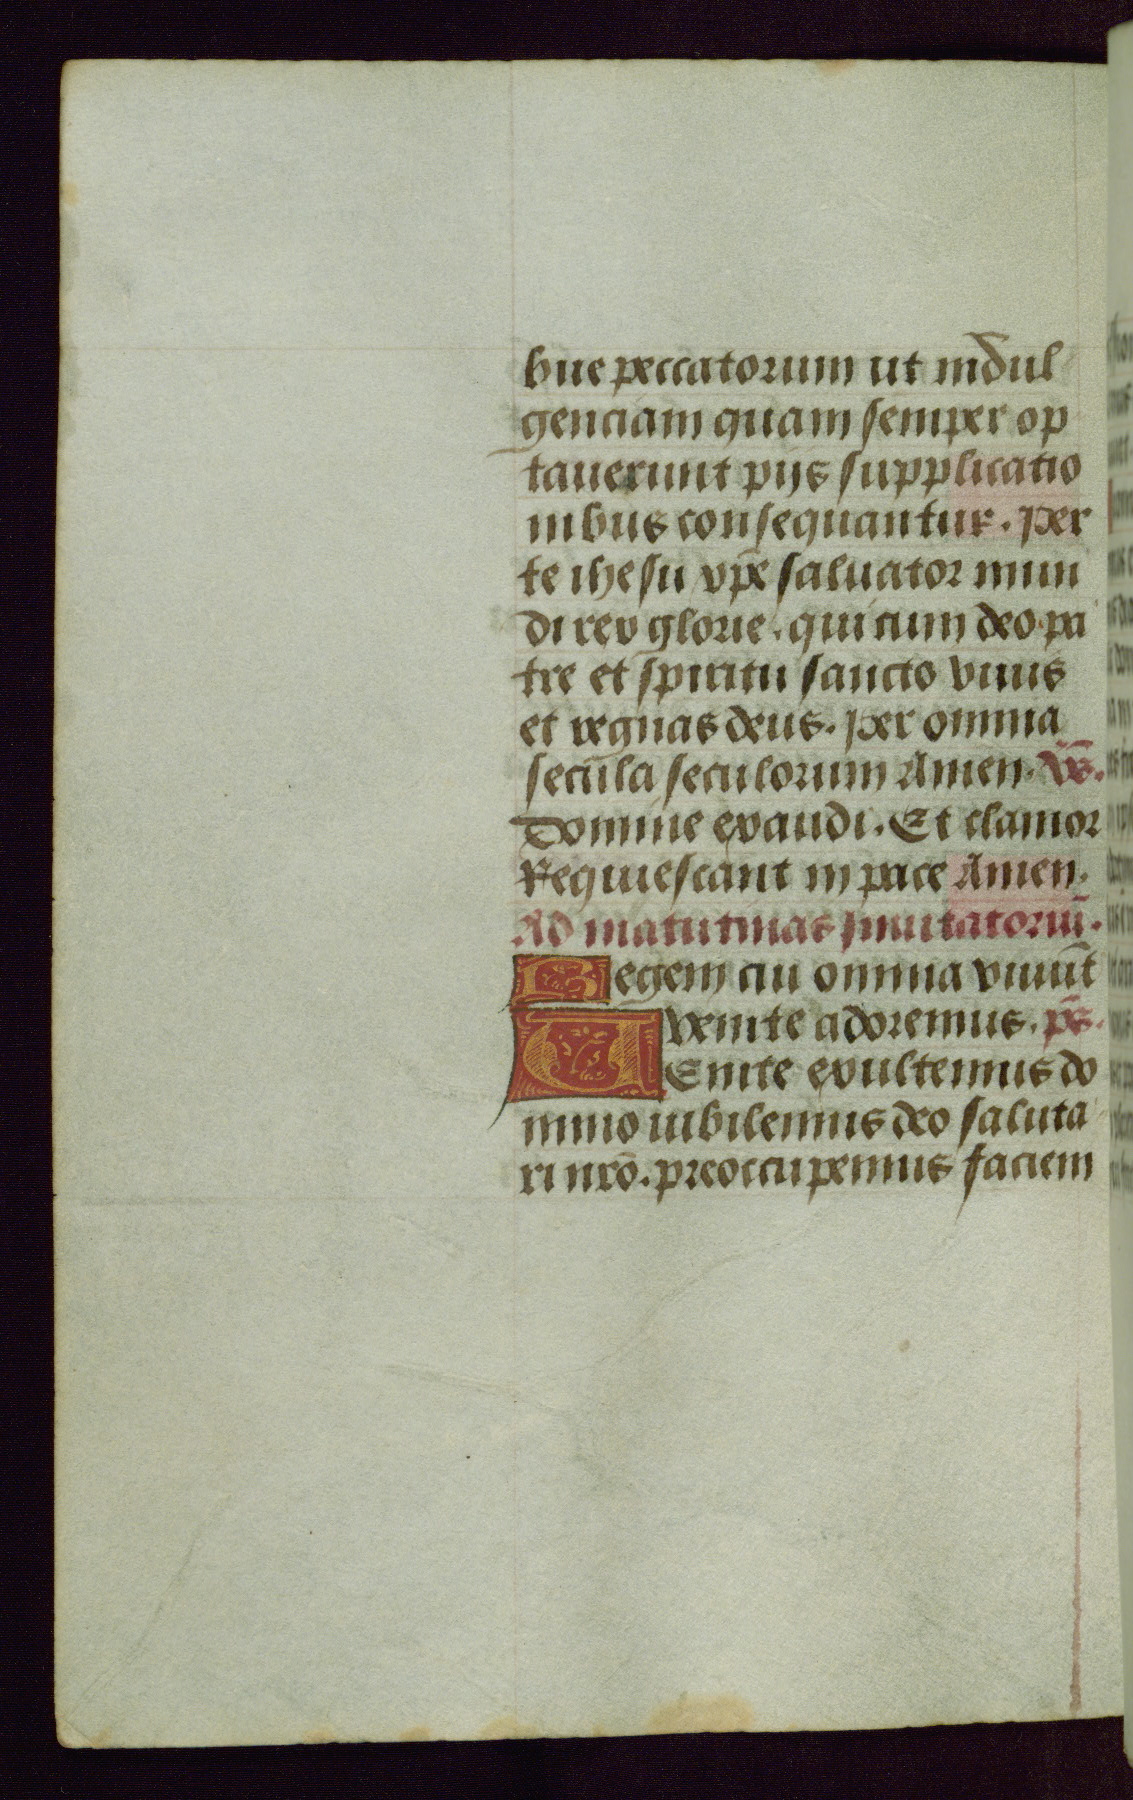 bue peccatorum ut indul
genciam quam semper op
tauerunt pijs supplicatio
nibus consequantur. per
te ihesu xp̄e saluator mun
di rex glorie. qui cum deo pa
tre et spiritu sancto viuis
et regnas deus. per omnia
secula seculorum Amen. v̄s.
Domine exaudi. Et clamor
Requiescant in pace Amen.
Ad matutinas inuitatoriū.
Regem cui omnia viuūt
venite adoremus. p̄s.
VEnite exultemus do
mino iubilemus deo saluta
ri nr̄o. preoccupemus faciem